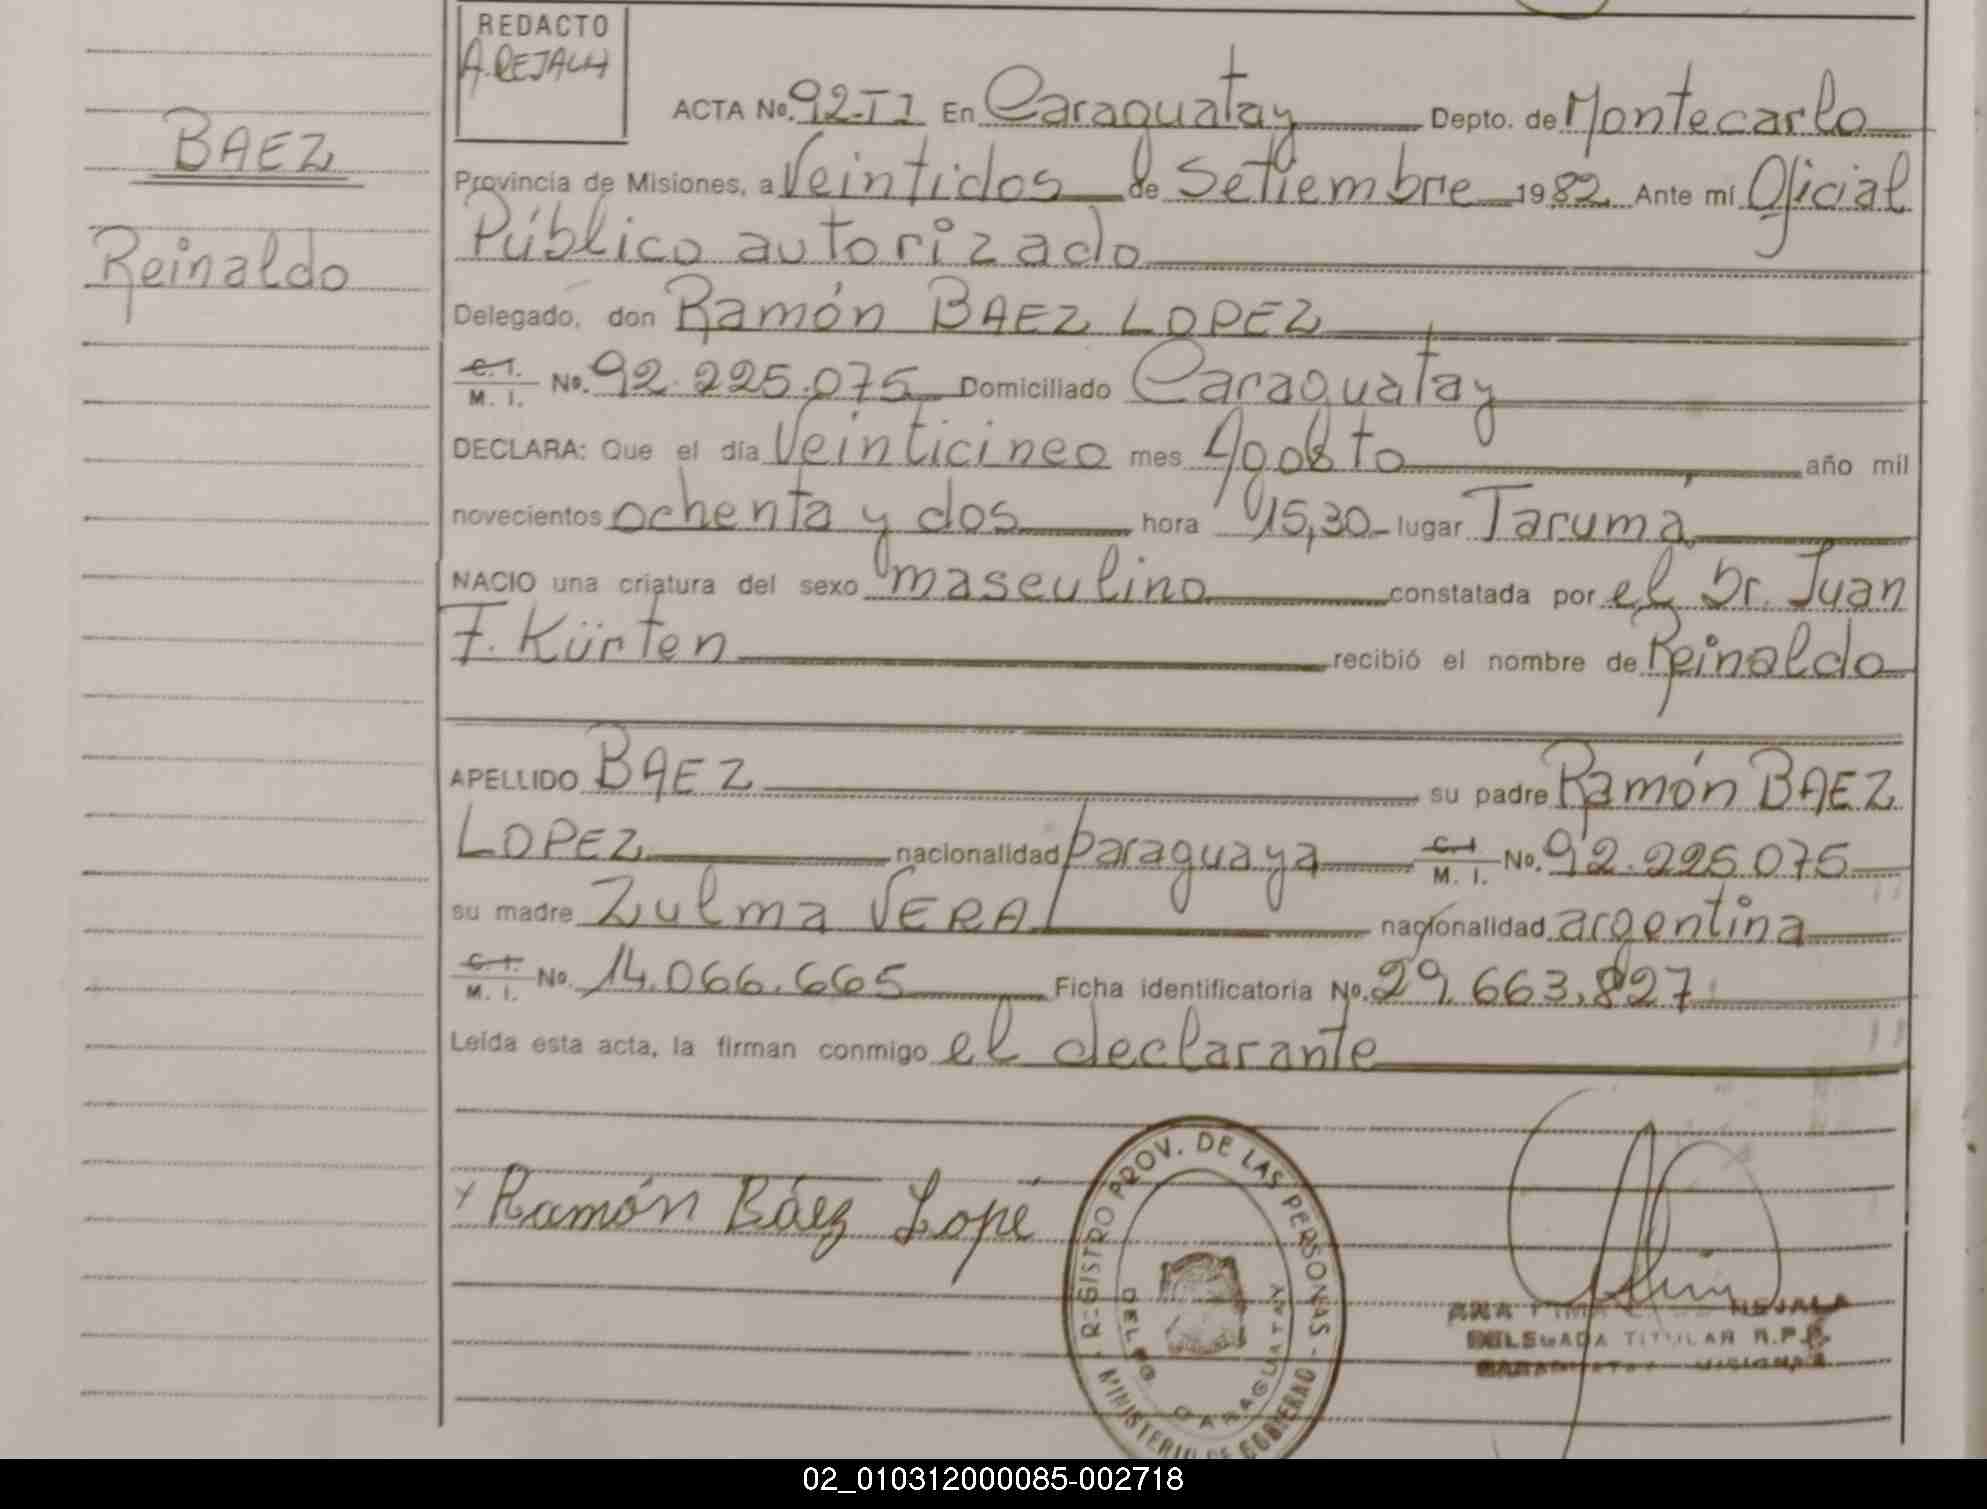 REDACTO
A. REJALA
BAEZ
Reinaldo
ACTA No. 92-TI En Caraguatay Depto. de Montecarlo
Provincia de Misiones, a Veintidos de Setiembre 1982 Ante mí Oficial
Público autorizado
Delegado, don Ramón BAEZ LOPEZ
C. I. M. I. No. 92.225.075 Domiciliado Caraguatay
DECLARA: Que el día Veinticinco mes Agosto año mil
novecientos ochenta y dos hora 15,30 lugar Tarumá
NACIO una criatura del sexo masculino constatada por el Dr. Juan
F. Kürten recibió el nombre de Reinaldo
APELLIDO BAEZ su padre Ramón BAEZ
LOPEZ nacionalidad paraguaya C. I. M. I. No. 92.225.075
su madre Zulma VERA nacionalidad argentina
C. I. M. I. No. 14.066.665 Ficha identificatoria No. 29.663.827
Leída esta acta, la firman conmigo el declarante
Ramón Báez Lope
REGISTRO PROV. DE LAS PERSONAS
MINISTERIO DE GOBIERNO
DELEG CARAGUATAY
ANA REJALA
DELEGADA TITULAR R.P.P.
MISIONES
02_010312000085-002718